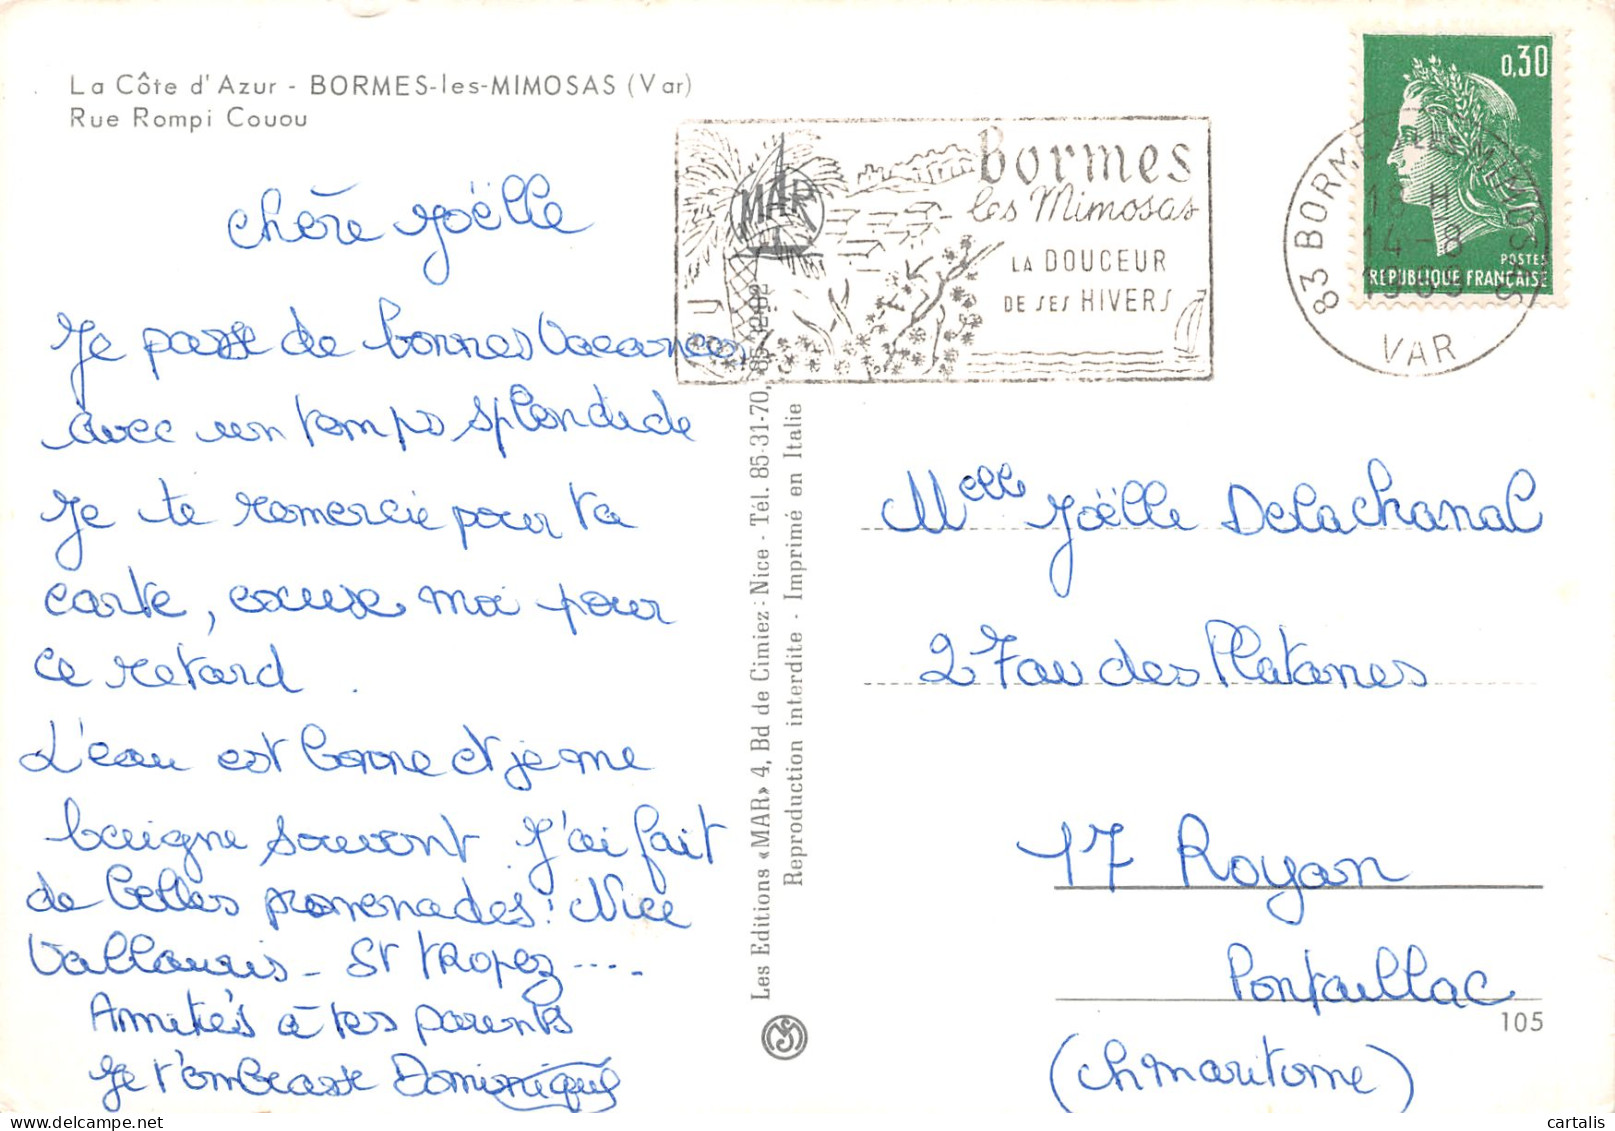 La Côte d'Azur - BORMES-les-MIMOSAS (Var)
Rue Rompi Couou
chère Joëlle
Je passe de bonnes vacances
avec un temps splendide
Je te remercie pour ta
carte, excuse moi pour
ce retard.
L'eau est bonne et je me
baigne souvent. J'ai fait
de belles promenades: Nice
Vallauris - St Tropez ....
Amitiés à tes parents
Je t'embrasse Dominique
Les Editions «MAR» 4, Bd de Cimiez - Nice - Tél. 85-31-70, 85-
Reproduction interdite - Imprimé en Italie
MAR
Bormes
les Mimosas
LA DOUCEUR
DE SES HIVERS
83 BORMES LES MIMOSAS
18 H
14-8
VAR
0,30
POSTES
REPUBLIQUE FRANÇAISE
Melle Joëlle Delachanal
27 av des Platanes
17 Royan
Pontaillac
(ch maritime)
105
cartalis